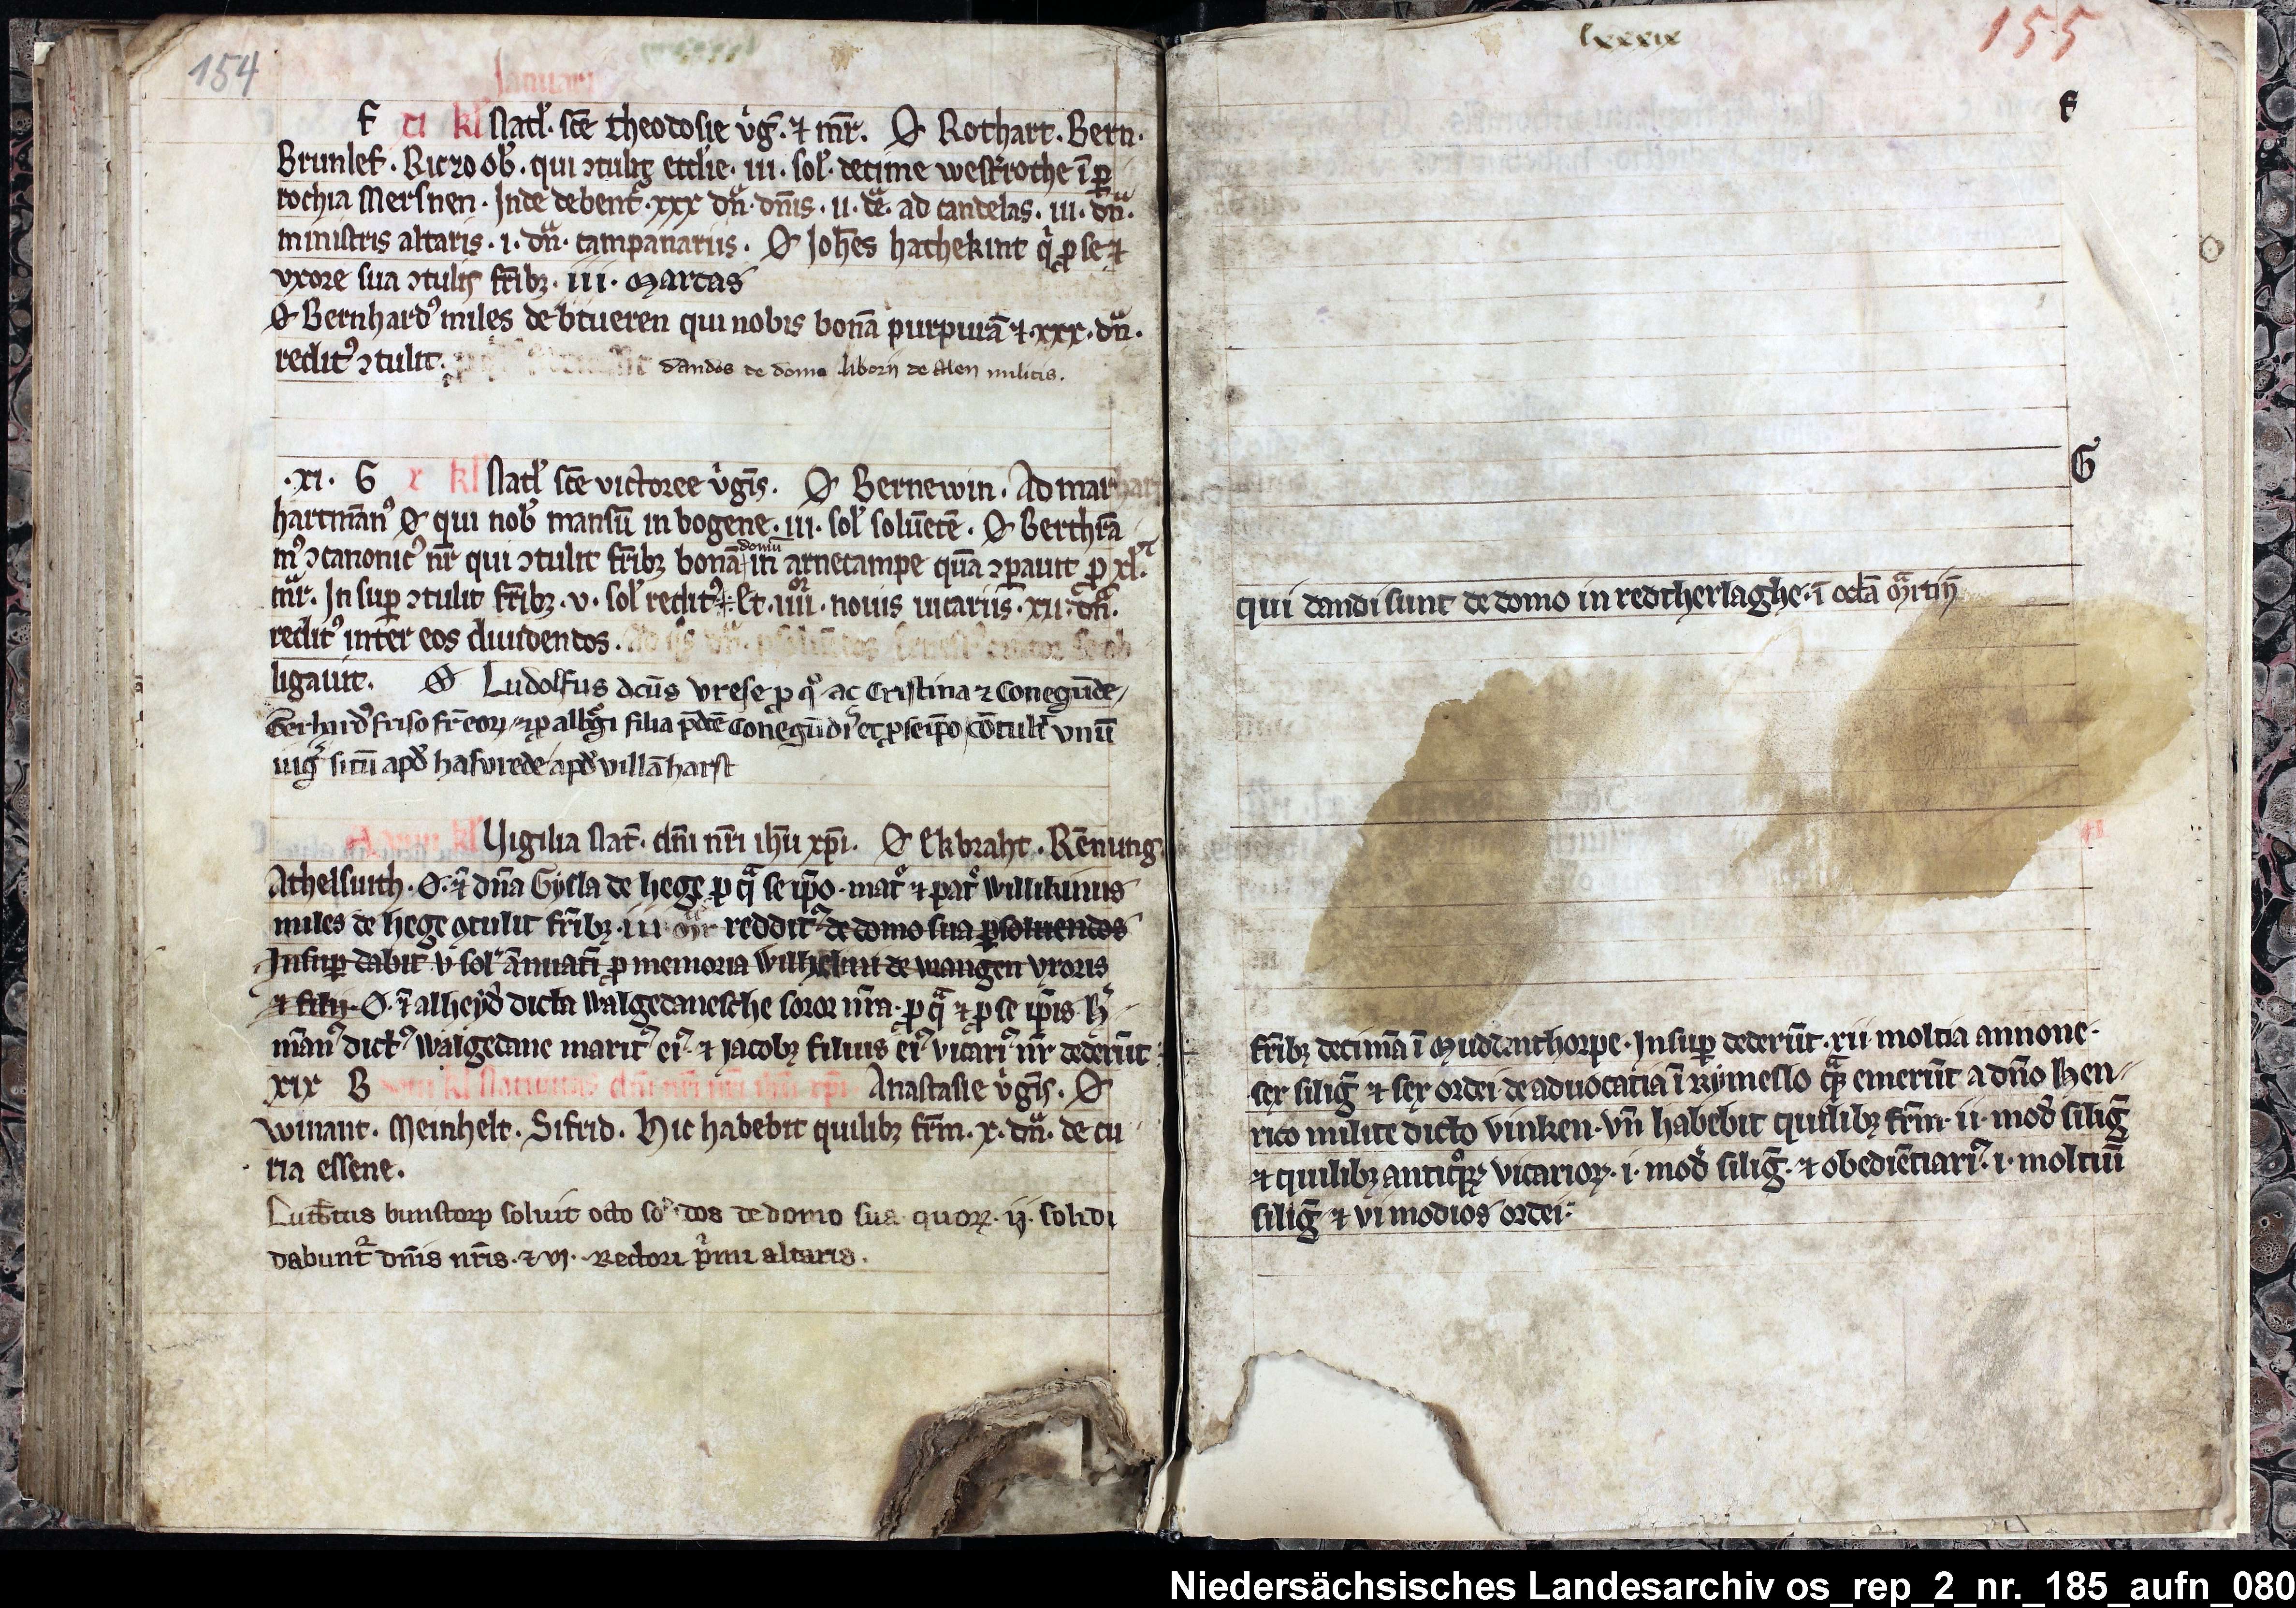 154
Januarii
F xi kl' Natl'. scē theodosie v̊g̅. ⁊ mr̅. O Rothart. Bern.
Brunlef. Riczo ob'. qui ↄtulit eccl'ie. iii. sol'. decime westrothe ī p̱
rochia Mersnen. Inde debent᷑. xxx dn̄. dn̄is. ii. dē. ad candelas. iii. dn̄.
ministris altaris. i. dn̄. campanariis. O Joh̄es hachekint q̇ ꝓ se ⁊
vxore sua ↄtulit fr̄ibꝫ. iii. marcas
O Bernhardꝰ miles de btueren qui nobis bonā purpurā ⁊. xxx. dn̄.
reditꝰ ↄtulit. dandos de domo liborij de Alen militis.
.xi. G x kl' Natl' scē victoree v̊gīs. O Bernewin. Admar
hartmānꝰ O qui nob' mansū in bogene. iii. sol' soluētē. O Berthrā
mꝰ ↄcanonicꝰ nr̄ qui ↄtulit fr̄ibꝫ bonā domū in arnecampe quā ↄꝑauit ꝓ xl.
mr̄. Insuꝑ ↄtulit fr̄ibꝫ. v. sol' reditꝰ. Et. iiii. nouis uicariis. xii. dn̄.
reditꝰ inter eos diuidendos.
ligauit. O Ludolfus dcūs vrese ꝓ qͦ ac Cristina ⁊ Conegūde
Gerhardꝰ friso fr̄ eoꝝ ⁊ ꝓ albg̊i filia p̄dcē Conegūdi' et ꝓ seip̄o cōtulit vnū
iug̊ sitū apd' hasvrede apd' villā harst
A ix kl' Vigilia Nat̄. dn̄i nr̄i ih̄u xp̄i. O Ekbraht. Rēnung
Athelsuith. O. ⁊ dn̄a Gysla de hege ꝓ qͣ se ip̄o. mat᷑ ⁊ pat᷑ willikinus
miles de hege ↄtulit fr̄ibꝫ. iii mr̄ reddit᷑ de domo sua ꝑsoluendos
Insuꝑ dabit v sol' ānuatī ꝓ memoria Wilhelmi de wangen vxoris
⁊ filij. O. ⁊ alheyd' dicta walgedanesche soror nr̄a. ꝓ qͣ ⁊ ꝓ se ip̄is h'
mānꝰ dictꝰ walgedane maritꝰ eiꝰ. ⁊ jacobꝫ filius eiꝰ vicariꝰ nr̄ dederūt
XIX B viii kl' Natiuitas dn̄i nr̄i ih̄u xp̄i Anastasie v̊gīs. O
winant. Meinhelt. Sifrid. Hic habebit quilibꝫ fr̄m. x. dn̄. de cu
ria essene.
Lutb̄tus bunstorp soluit octo sol'dos de domo sua quoꝝ. ij. solidi
dabunt᷑ dn̄is nr̄is. ⁊ vj. Rectori p̊mi altaris.
lxxxix
155
F
G
qui dandi sunt de domo in redcherlaghe. ī octā mr̄tiṇ
fr̄ibꝫ decimā ī muddenthorpe. Insuꝑ dederūt. xii moltia annone.
sex silig̅ ⁊ sex ordei de aduocatia ī Rymesto qͣꝫ emerūt a dn̄o Hen
rico milite dicto vinken. vn̄ habebit quilibꝫ fr̄m. ii. mod' silig̅
⁊ quilibꝫ antiqͦꝝ vicarioꝝ. i. mod' silig̅. ⁊ obediētiariꝰ. i. moltiū
silig̅ ⁊ vi modios ordei.
Niedersächsisches Landesarchiv os_rep_2_nr._185_aufn_080